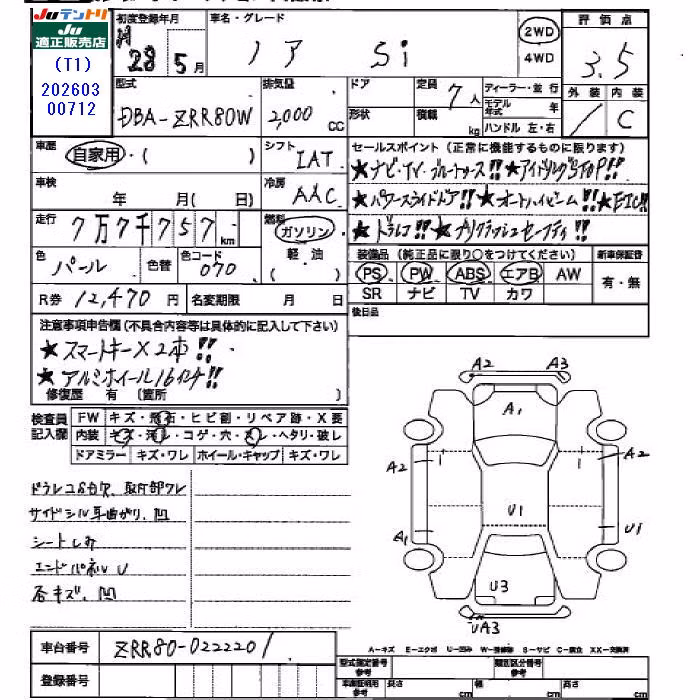 Juテントリ
Ju
適正販売店
(T1)
202603
00712
初度登録年月
車名・グレード
28 年 5 月
ノア Si
2WD
4WD
評価点
3.5
外装 内装
C
型式
DBA-ZRR80W
排気量
2,000 CC
ドア
形状
定員 7 人
積載 kg
ディーラー・並行
モデル年式 年
ハンドル 左・右
車歴
自家用・( )
シフト
IAT
セールスポイント (正常に機能するものに限ります)
★ナビ・TV・ブルートゥース!! ★アイドリングSTOP!!
★パワースライドドア!! ★オートハイビーム!! ★ETC!!
★ドラレコ!! ★プリクラッシュセーフティ!!
車検
年 月( 日)
冷房
AAC
走行
7万7千757 km
燃料
ガソリン
軽・油
( )
色
パール
色替
色コード
070
装備品 (純正品に限り○をつけてください)
新車保証書
PS PW ABS エアB AW
SR ナビ TV カワ
有・無
R券 12,470 円
名変期限 月 日
後日品
注意事項申告欄(不具合内容等は具体的に記入して下さい)
★スマートキー×2本!!
★アルミホイール16インチ!!
修復歴 有 (箇所 )
検査員
記入欄
FW キズ・飛石・ヒビ割・リペア跡・X要
内装 キズ・汚れ・コゲ・穴・スレ・ヘタリ・破レ
ドアミラー キズ・ワレ ホイール・キャップ キズ・ワレ
サイドシル耳曲がり、凹
シートしみ
エンドパネル U
各キズ、凹
A2 A3
A1
A2 A2
U1
A1 U1
U3
UA3
車台番号
ZRR80-0222201
登録番号
A-キズ E-エクボ U-凹み W-補修跡 S-サビ C-腐食 XX-交換済
型式指定番号
類別区分番号
車庫証明用
参考
長さ cm
幅 cm
高さ cm